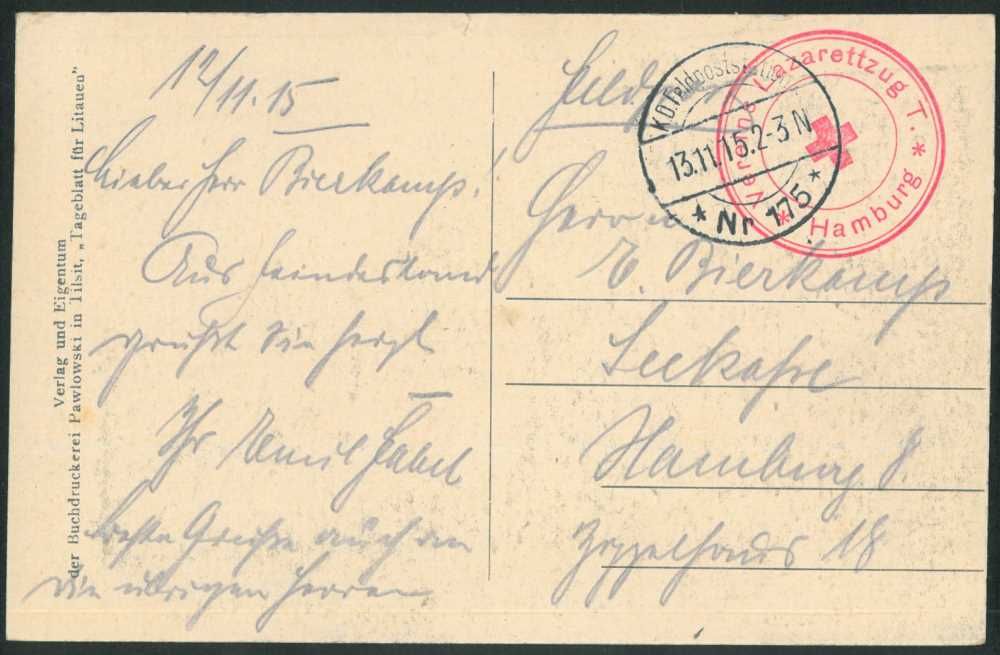 12/11. 15
Lieber Herr Bierkamp!
Aus Feindesland
grüßt Sie herzl
Ihr Emil Habel
beste Grüße auch an
die übrigen Herren.
Verlag und Eigentum
der Buchdruckerei Pawlowski in Tilsit, „Tageblatt für Litauen"
Feldpost
Herrn
E. Bierkamp
Hamburg 8.
Zippelhaus 18
K.D. Feldpoststation
13.11.15.2-3N
* Nr 175 *
Vereins Lazarettzug T.
* Hamburg *